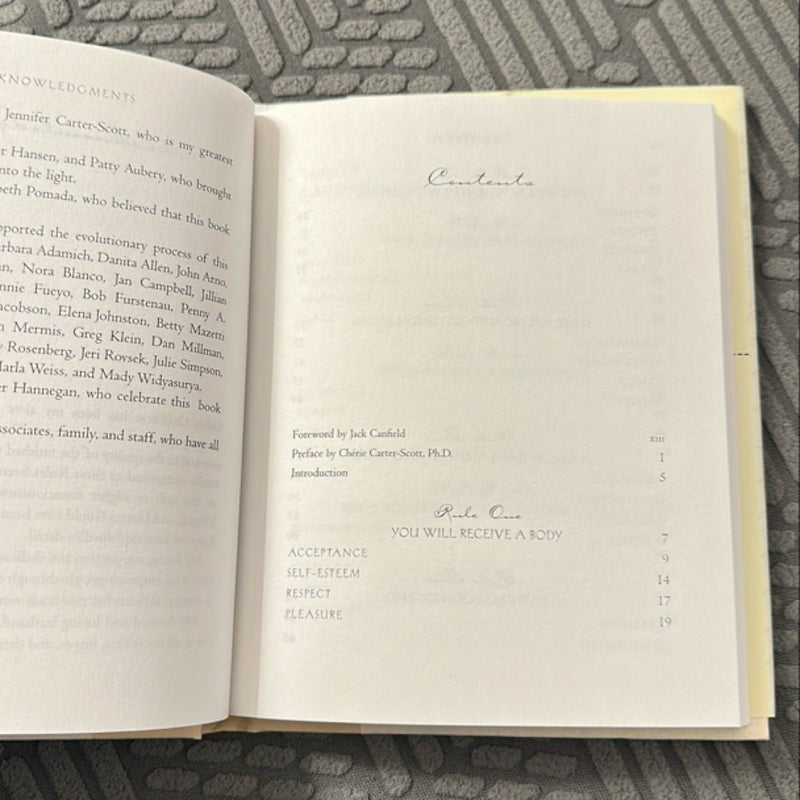 KNOWLEDGMENTS
Jennifer Carter-Scott, who is my greatest
r Hansen, and Patty Aubery, who brought
nto the light.
beth Pomada, who believed that this book
pported the evolutionary process of this
rbara Adamich, Danita Allen, John Arno,
n, Nora Blanco, Jan Campbell, Jillian
nnie Fueyo, Bob Furstenau, Penny A.
acobson, Elena Johnston, Betty Mazetti
n Mermis, Greg Klein, Dan Millman,
y Rosenberg, Jeri Rovsek, Julie Simpson,
Marla Weiss, and Mady Widyasurya.
er Hannegan, who celebrate this book
ssociates, family, and staff, who have all
Contents
Foreword by Jack Canfield xiii
Preface by Chérie Carter-Scott, Ph.D. 1
Introduction 5
Rule One
YOU WILL RECEIVE A BODY 7
ACCEPTANCE 9
SELF-ESTEEM 14
RESPECT 17
PLEASURE 19